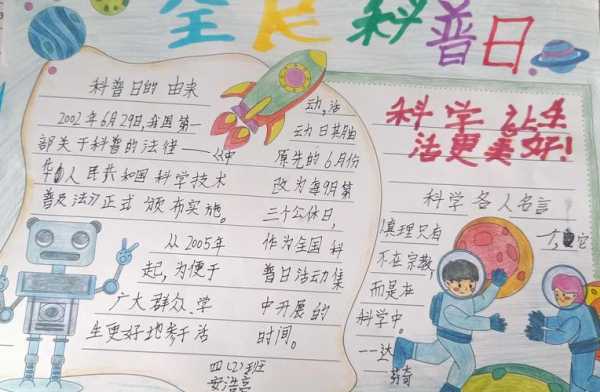 全民科普日
科普日的 由来
2002年6月29日,我国第一
部关于科普的法律——《中
华人民共和国科学技术
普及法》正式颁布实施。
从2005年
起,为便于
广大群众、学
生更好地参于活
动,活
动日其期由
原先的6月份
改为每9月第
三个公休日,
作为全国科
普日活动集
中开展的
时间。
四(2)班
安浩亮
科学让生
活更美好!
科学名人名言
真理只有
一个,它
不在宗教,
而是在
科学中。
——达
芬奇